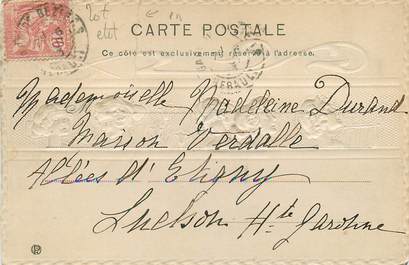 CARTE POSTALE
Ce côté est exclusivement réservé à l'adresse.
Mademoiselle Madeleine Durand
Maison Verdalle
Allées d'Etigny
Luchon Hte Garonne